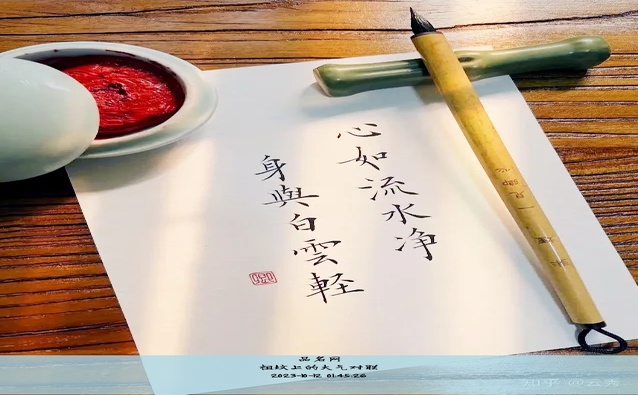 心如流水净
身與白雲軽
品名网
祖坟上的大气对联
2023-10-12 01:45:26
知乎 @云秀